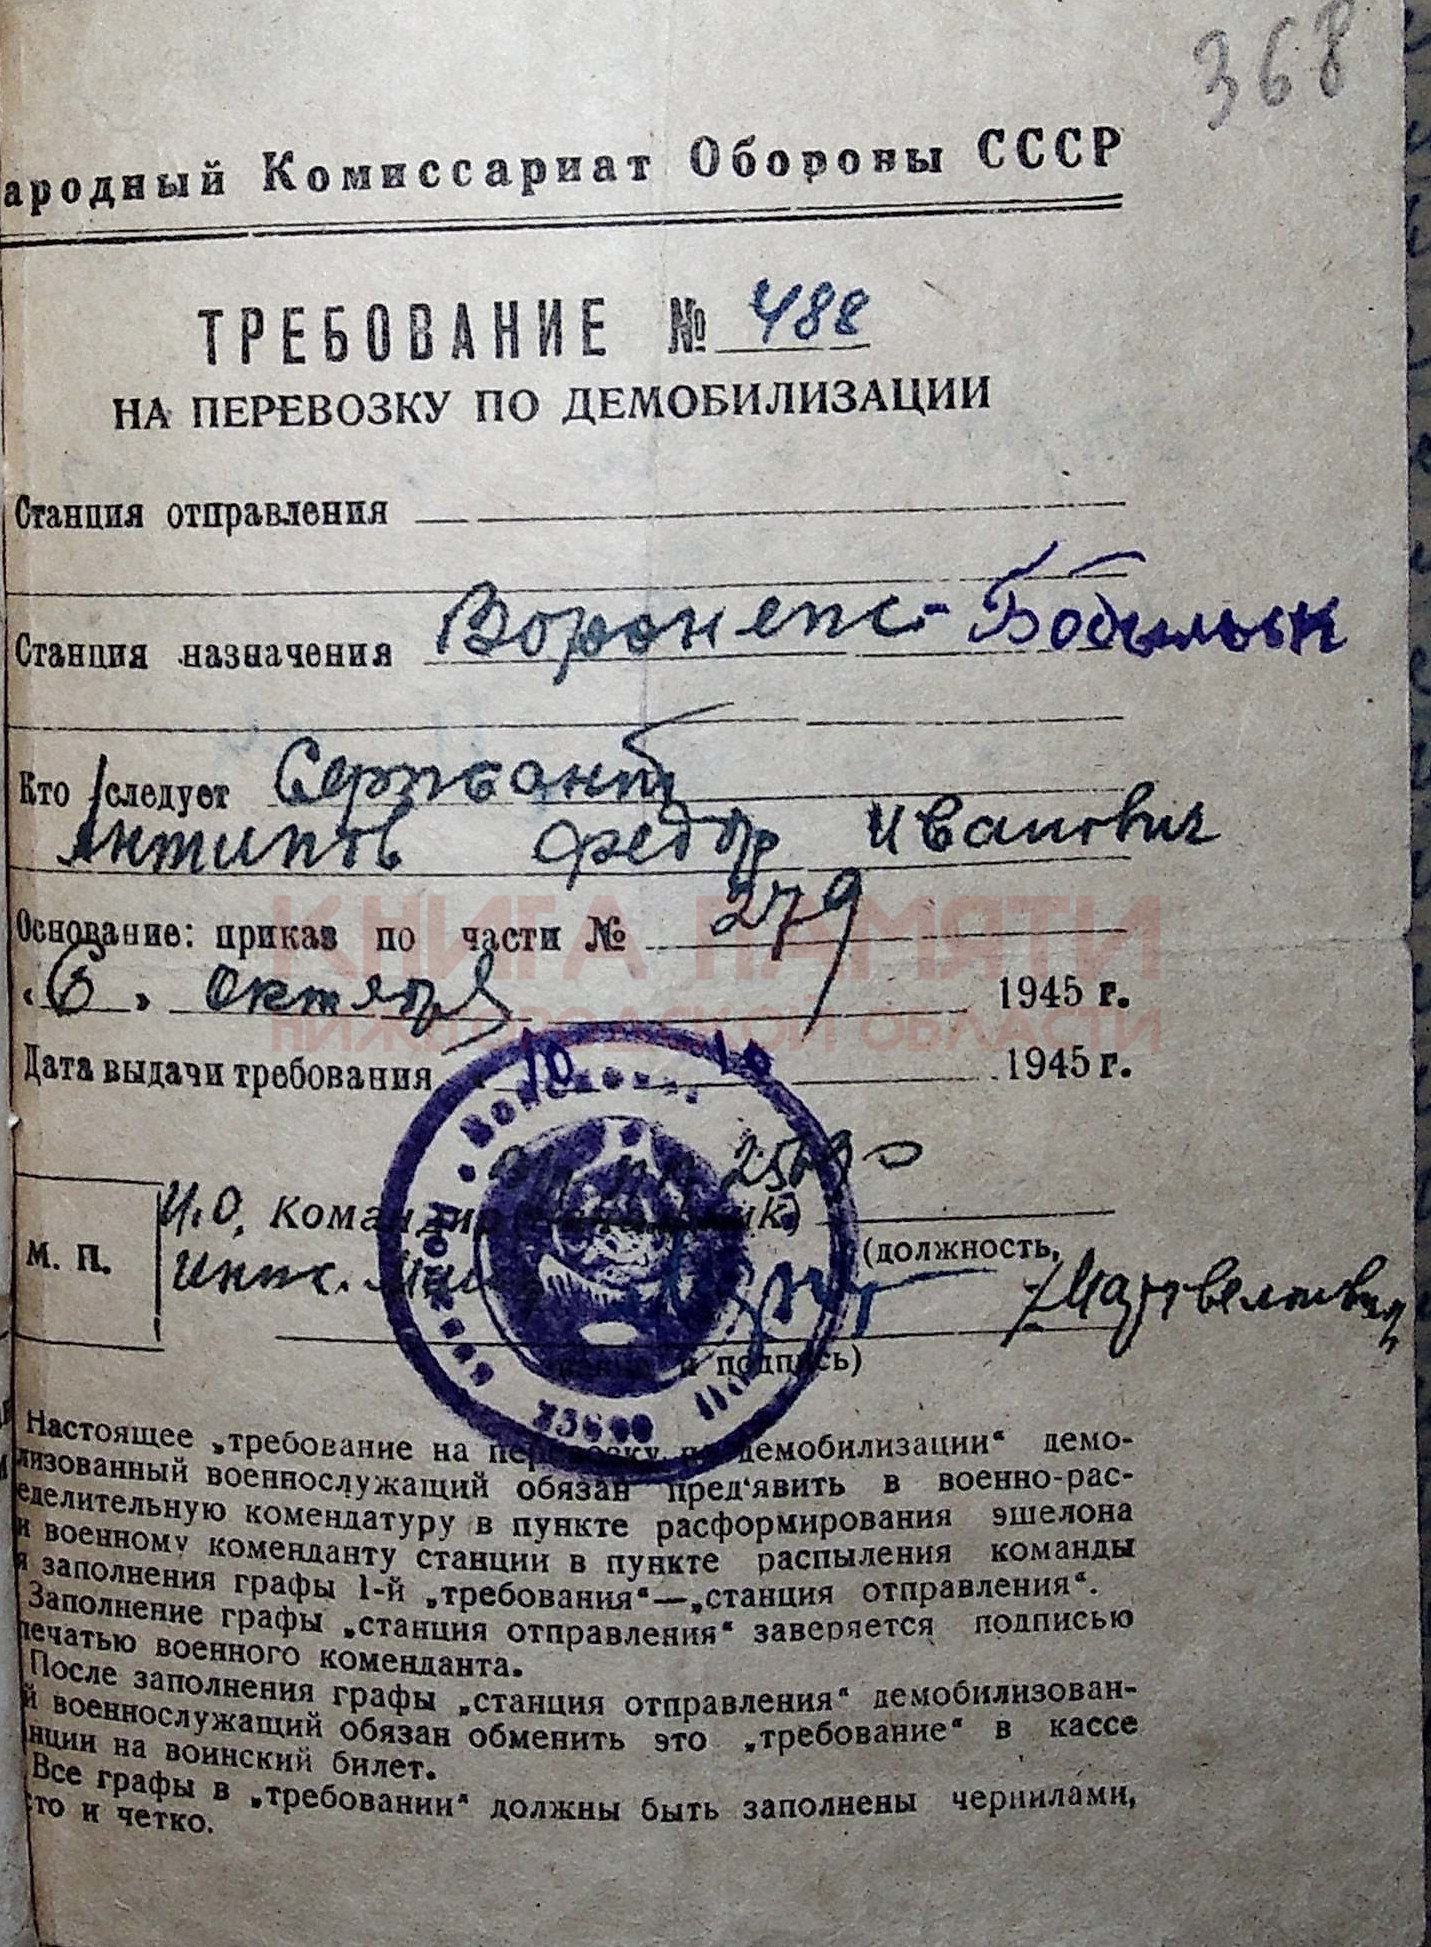 368
ародный Комиссариат Обороны СССР
ТРЕБОВАНИЕ № 488
НА ПЕРЕВОЗКУ ПО ДЕМОБИЛИЗАЦИИ
Станция отправления
Станция назначения
Кто следует Сержант
Антипов Федор Иванович
Основание: приказ по части № 279
КНИГА ПАМЯТИ
„6" октября 1945 г.
НИЖЕГОРОДСКОЙ ОБЛАСТИ
Дата выдачи требования 10 10 1945 г.
И.О. Командир
М. П.
(должность,
и подпись)
Настоящее „требование на перевозку по демобилизации“ демо-
лизованный военнослужащий обязан пред‘явить в военно-рас-
еделительную комендатуру в пункте расформирования эшелона
и военному коменданту станции в пункте распыления команды
я заполнения графы 1-й „требования“—„станция отправления“.
Заполнение графы „станция отправления“ заверяется подписью
печатью военного коменданта.
После заполнения графы „станция отправления“ демобилизован-
й военнослужащий обязан обменить это „требование“ в кассе
нции на воинский билет.
Все графы в „требовании“ должны быть заполнены чернилами,
сто и четко.